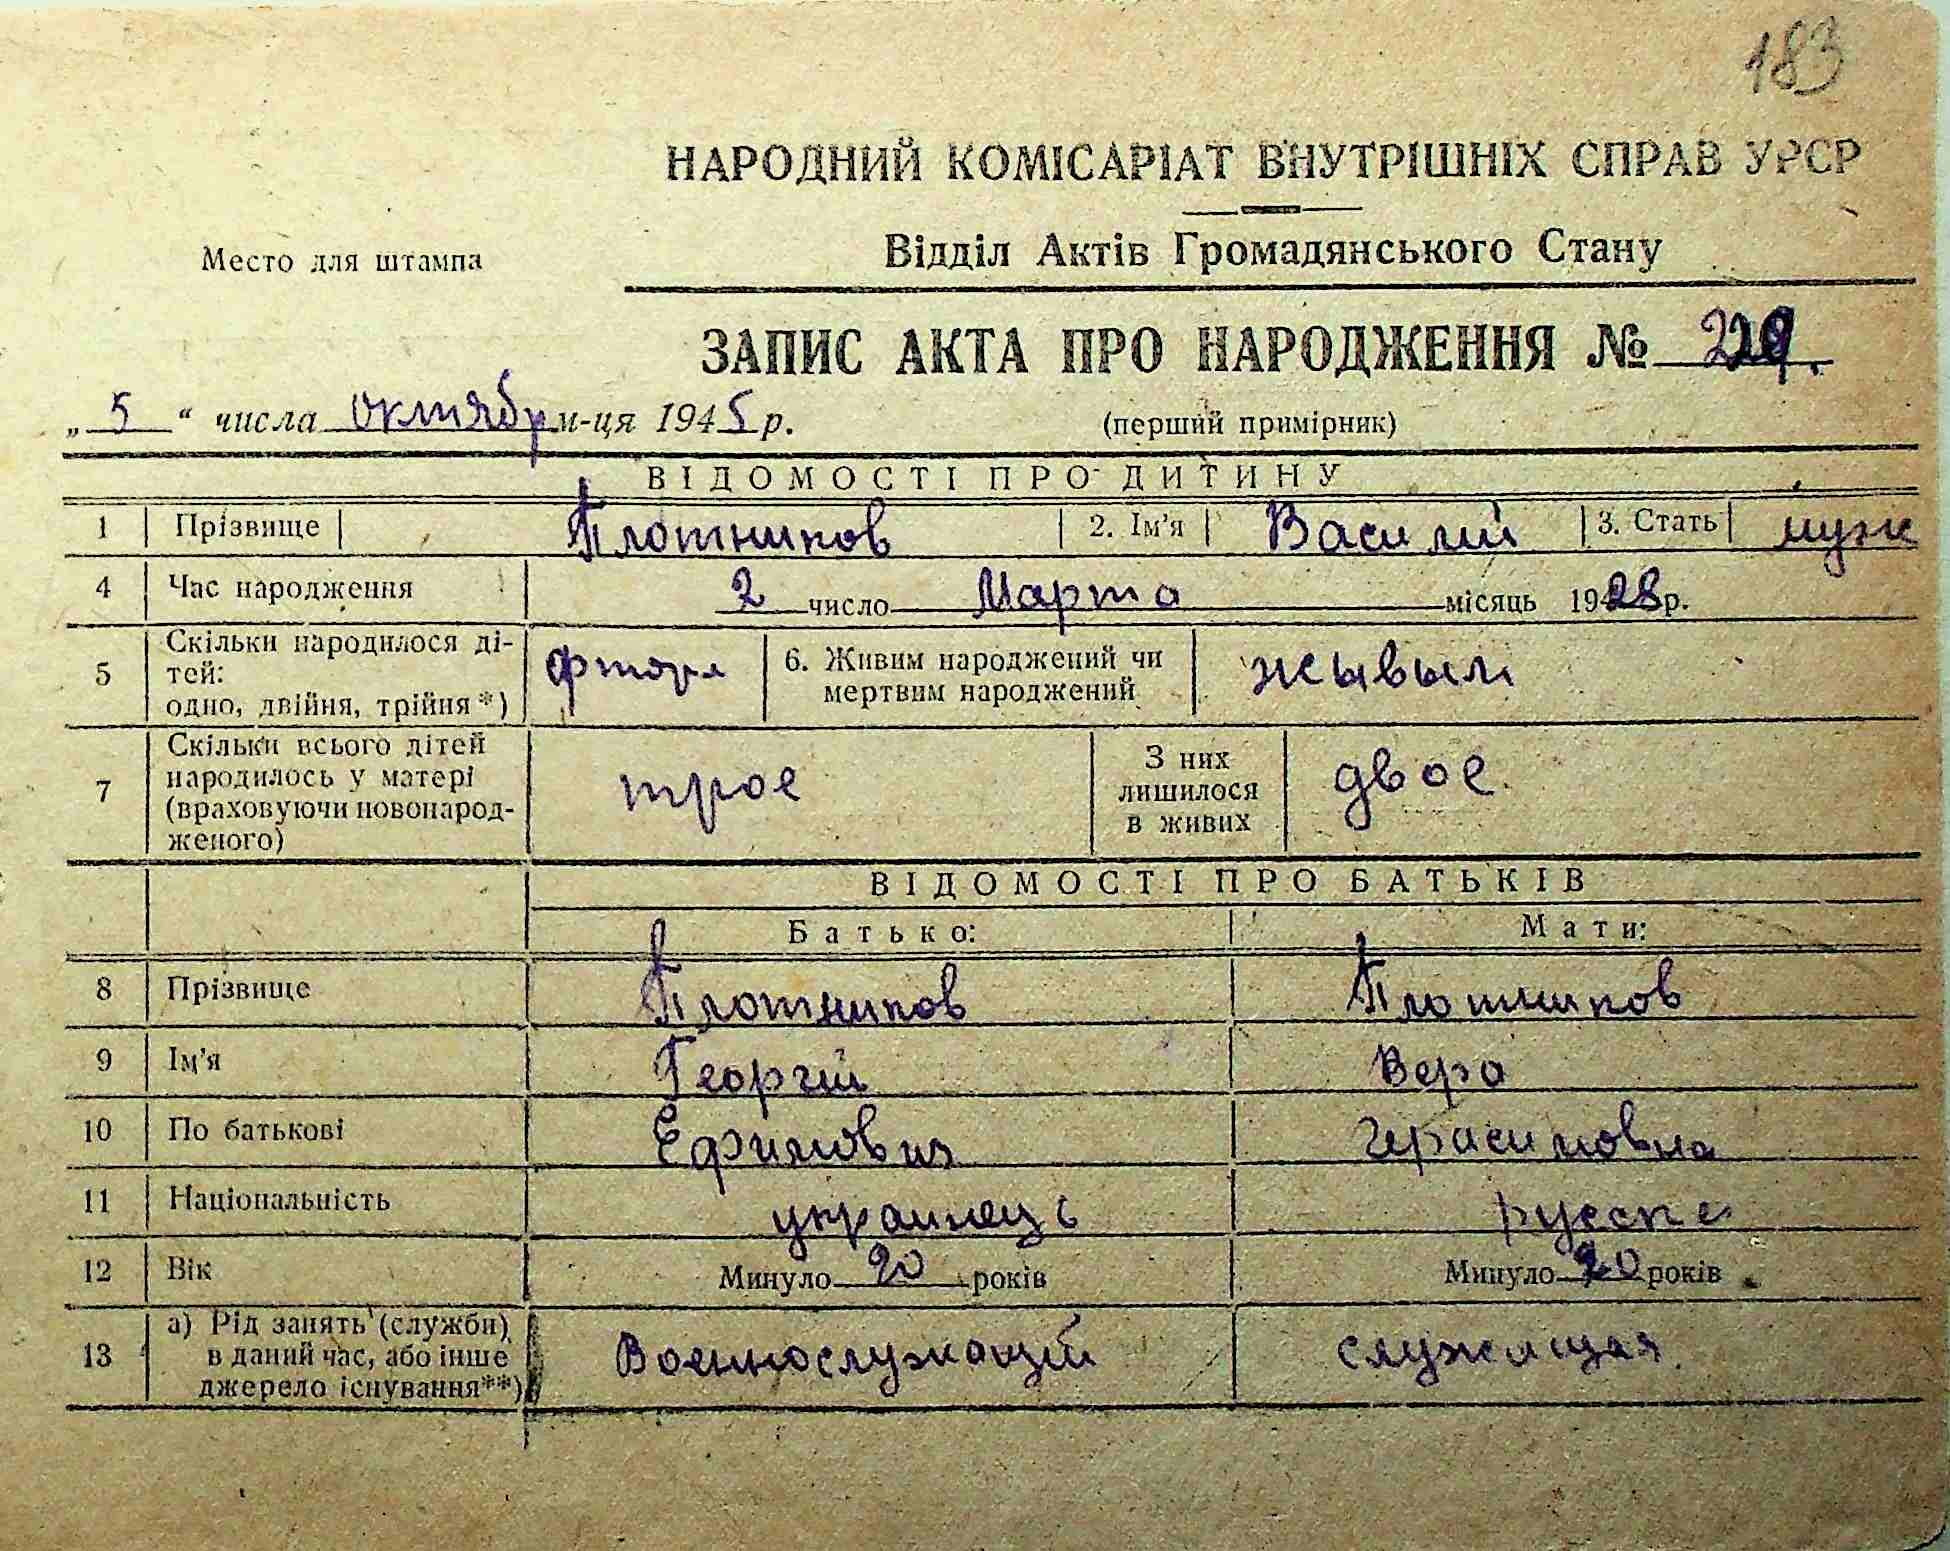 183
НАРОДНИЙ КОМІСАРІАТ ВНУТРІШНІХ СПРАВ УРСР
Место для штампа
Відділ Актів Громадянського Стану
ЗАПИС АКТА ПРО НАРОДЖЕННЯ №
„ 5 “ числа октябр м-ця 1945 р. (перший примірник)
ВІДОМОСТІ ПРО ДИТИНУ
1 Прізвище Плотников 2. Ім'я Василий 3. Стать муж
4 Час народження 2 число Марта місяць 1928 р.
5 Скільки народилося ді-
тей:
одно, двійня, трійня*)
6. Живим народжений чи
мертвим народжений
жывым
7 Скільки всього дітей
народилось у матері
(враховуючи новонарод-
женого)
трое
З них
лишилося
в живих
двое
ВІДОМОСТІ ПРО БАТЬКІВ
Батько: Мати:
8 Прізвище Плотников Плотников
9 Ім'я Георгій Вера
10 По батькові Ефимович Герасимовна
11 Національність украинець
12 Вік Минуло 20 років Минуло 20 років
13 а) Рід занять (служби)
в даний час, або інше
джерело існування**)
Военнослужащій служащая